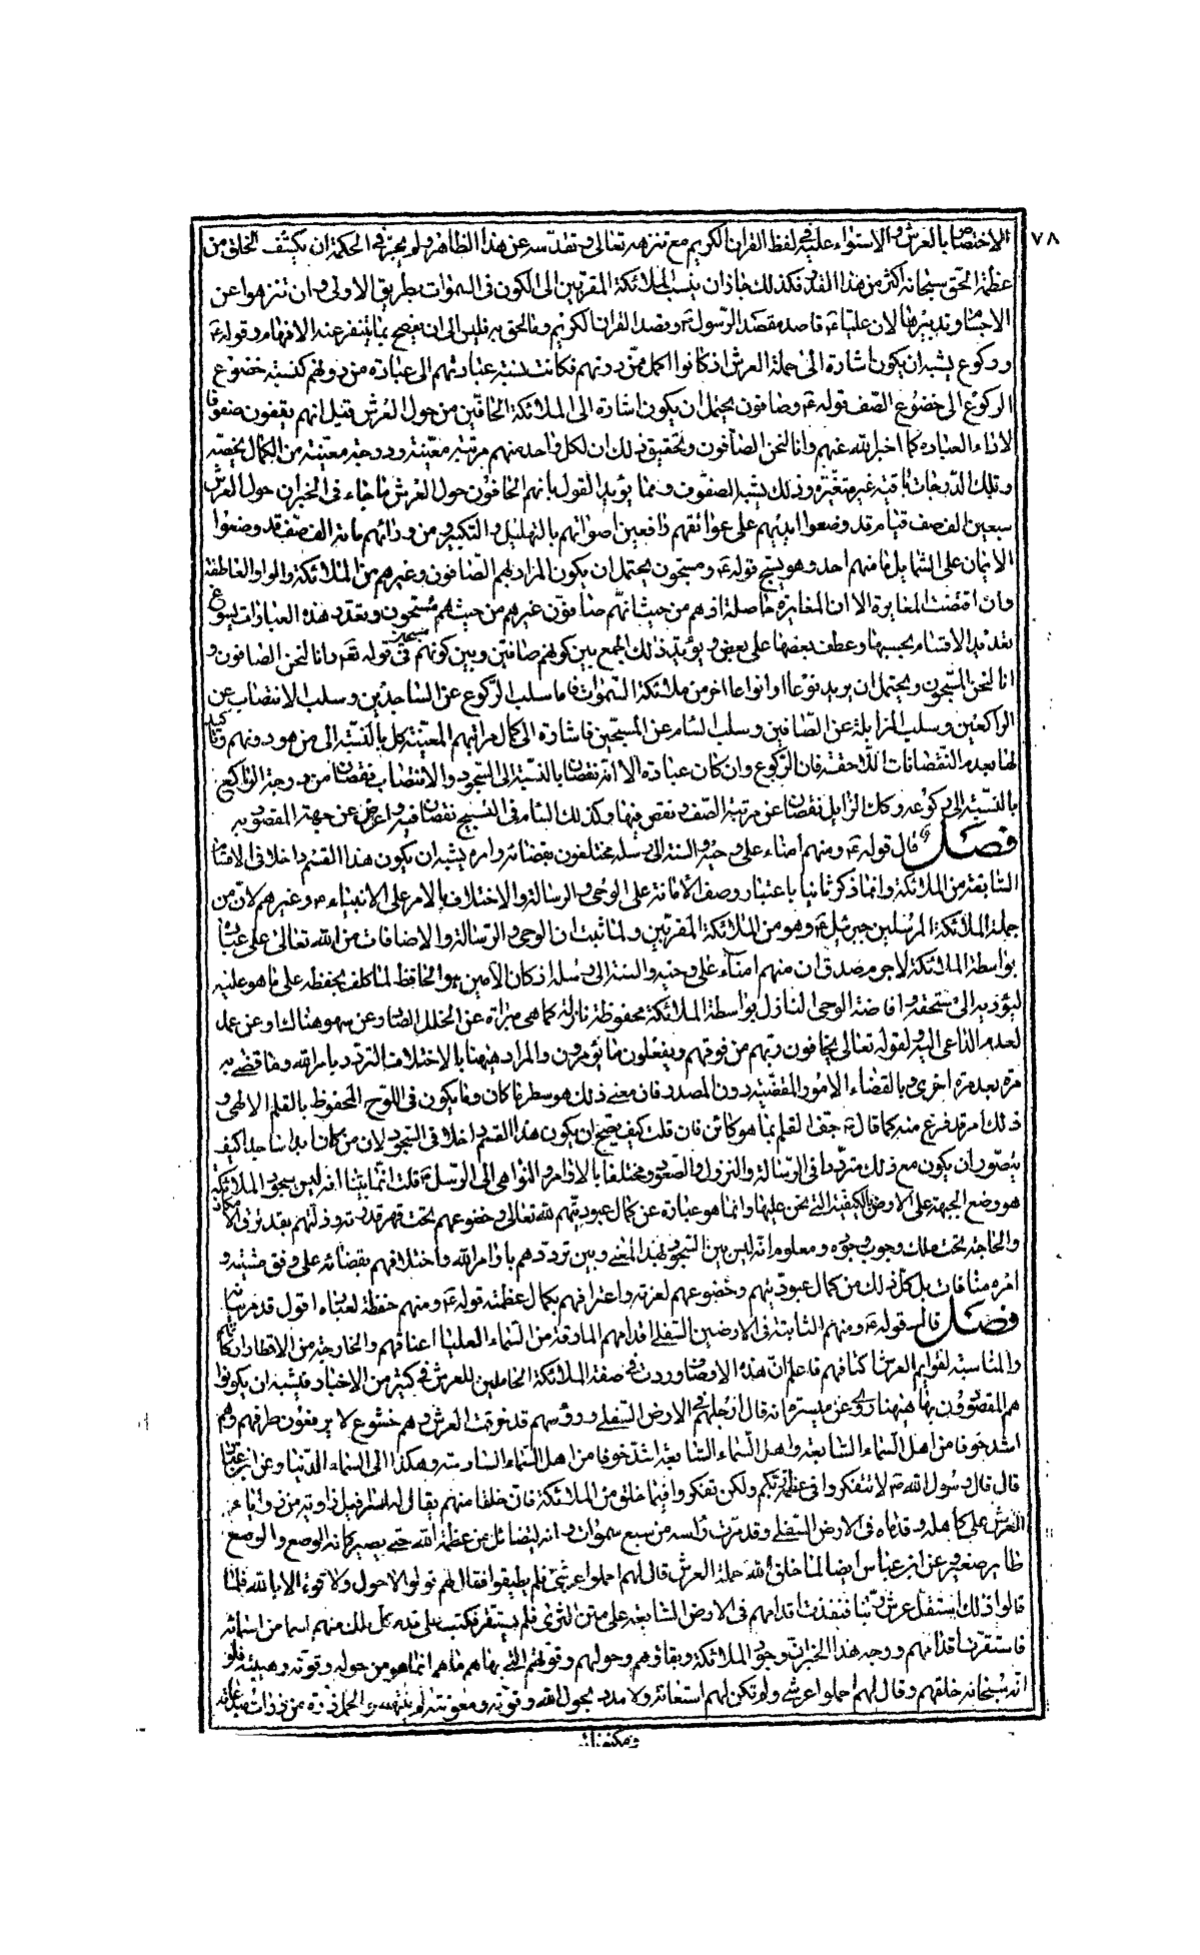 ٧٨
الاختصاص بالعرش والاستواء عليه في لفظ القران الكريم مع تنزهه تعالى وتقدسه عن هذا الظاهر ولم يجز في الحكمة ان يكشف الخلق من
عظمة الحق سبحانه اكثر من هذا القدر فكذلك جاز ان ينسب الملائكة المقربين الى الكون في السموات بطريق الاولى وان تنزهوا عن
الاجسام وتدبيرها لان عليا ع قاصد مقصد الرسول ص وقصد القران الكريم وناطق به فليس الى ان يفصح بما يتنفر عنه الافهام وقوله ع
وركوع يشبه ان يكون اشارة الى حملة العرش اذ كانوا اكمل ممن دونهم فكانت نسبة عبادتهم الى عبادة من دونهم كنسبة خضوع
الركوع الى خضوع الصف قوله ع وصافون يحتمل ان يكون اشارة الى الملائكة الحافين من حول العرش فقيل انهم يقفون صفوفا
لاداء العبادة كما اخبر الله عنهم وانا لنحن الصافون وتحقيق ذلك ان لكل واحد منهم مرتبة معينة ودرجة معينة من الكمال يخصه
وتلك الدرجات باقية غير متغيرة وذلك يشبه الصفوف ومما يؤيد القول بانهم الحافون حول العرش ما جاء في الخبر ان حول العرش
سبعين الف صف قيام قد وضعوا ايديهم على عواتقهم رافعين اصواتهم بالتهليل والتكبير ومن ورائهم مائة الف صف قد وضعوا
الايمان على الشمايل ما منهم احد وهو يسبح قوله ع ومسبحون يحتمل ان يكون المراد بهم الصافون وغيرهم من الملائكة والواو العاطفة
وان اقتضت المغايرة الا ان المغايرة حاصلة اذ هم من حيث انهم صافون غيرهم من حيث هم مسبحون وتعدد هذه العبارات يسوغ
تعديد الاقسام بحسبها وعطف بعضها على بعض ويؤيد ذلك الجمع بين كونهم صافين وبين كونهم مسبحين في قوله تع وانا لنحن الصافون و
انا لنحن المسبحون ويحتمل ان يريد نوعا او انواعا اخر من ملائكة السموات فاما سلب الركوع عن الساجدين وسلب الانتصاب عن
الراكعين وسلب المزايلة عن الصافين وسلب السام عن المسبحين فاشارة الى كمال مراتبهم المعينة كل بالنسبة الى من هو دونهم وتاكيد
لها بعدم النقصانات اللاحقة فان الركوع وان كان عبادة الا انه نقصان بالنسبة الى السجود والانتصاب نقصان من درجة الراكع
بالنسبة الى ركوعه وكك الزايل نقصان عن مرتبة الصف ونقص فيها وكذلك السام في التسبيح نقصان فيه واعراض عن جهة المقصود به
فصل قال قوله ع ومنهم امناء على وحيه والسنة الى رسله مختلفون بقضائه وامره يشبه ان يكون هذا القسم داخلا في الاقسام
السابقة من الملائكة وانما ذكر ثانيا باعتبار وصف الامانة على الوحي والرسالة والاختلاف بالامر على الانبياء ع وغيرهم لان من
جملة الملائكة المرسلين جبرئيل ع وهو من الملائكة المقربين ولما ثبت ان الوحي والرسالة والاضافات من الله تعالى على عباده
بواسطة الملائكة لا جرم صدق ان منهم امناء على وحيه والسنة الى رسله اذ كان الامين هو الحافظ لما كلف بحفظه على ما هو عليه
ليؤديه الى مستحقه وافاضة الوحي النازل بواسطة الملائكة محفوظة نازلة كما هي مبراة عن الخلل الصادر عن سهو هناك او عن عمد
لعدم الداعي اليه ولقوله تعالى يخافون ربهم من فوقهم ويفعلون ما يؤمرون والمراد ههنا بالاختلاف التردد بامر الله وما قضى به
مرة بعد مرة اخرى وبالقضاء الامور المقضية دون المصدر فان معنى ذلك هو سطر ما كان وما يكون في اللوح المحفوظ بالقلم الالهي و
ذلك امر قد فرغ منه كما قال ص جف القلم بما هو كائن فان قلت كيف يصح ان يكون هذا القسم داخلا في السجود لان من كان ابدا ساجدا كيف
يتصور ان يكون مع ذلك مترددا في الرسالة والنزول والصعود ومختلفا بالاوامر والنواهي الى الرسل ع قلت انما بينا انه ليس سجود الملائكة
هو وضع الجبهة على الارض بالكيفية التي نحن عليها وانما هو عبارة عن كمال عبوديتهم لله تعالى وخضوعهم تحت قهر قدرته وذلتهم بقدر ثرى الامكان
والحاجة تحت ملك وجوب وجوده ومعلوم انه ليس بين السجود بهذا المعنى وبين ترددهم باوامر الله واختلافهم بقضائه على وفق مشيته و
امره منافات بل كل ذلك من كمال عبوديتهم وخضوعهم لعزته واعترافهم بكمال عظمته قوله ع ومنهم حفظة لعباده اقول قد مر بيانه
فصل قال قوله ع ومنهم الثابتة في الارضين السفلى اقدامهم المارقة من السماء العليا اعناقهم والخارجة من الاقطار اركانهم
والمناسبة لقوايم العرش اكتافهم فاعلم ان هذه الاوصاف وردت في صفة الملائكة الحاملين للعرش في كثير من الاخبار فيشبه ان يكونوا
هم المقصودون بها ههنا روي عن ميسرة انه قال ارجلهم في الارض السفلى ورؤسهم قد خرقت العرش وهم خشوع لا يرفعون طرفهم وهم
اشد خوفا من اهل السماء السابعة واهل السماء السابعة اشد خوفا من اهل السماء السادسة وهكذا الى السماء الدنيا وعن ابن عباس
قال قال رسول الله ص لا تتفكروا في عظمة ربكم ولكن تفكروا فيما خلق من الملائكة فان خلقا منهم يقال له اسرافيل زاوية من زوايا
العرش على كاهله وقدماه في الارض السفلى وقد مرق راسه من سبع سموات وانه ليتضائل من عظمة الله حتى يصير كانه الوصع والوصع
طاير صغير وعن ابن عباس ايضا لما خلق الله حملة العرش قال لهم احملوا عرشي فلم يطيقوا فقال لهم قولوا لا حول ولا قوة الا بالله فلما
قالوا ذلك استقل عرش ربنا فنفذت اقدامهم في الارض السابعة على متن الثرى فلم يستقر فكتب على قدم كل ملك منهم اسما من اسمائه
فاستقرت اقدامهم ووجه هذا الخبر ان وجود الملائكة وبقاؤهم وحولهم وقوتهم التي بها هم ما هم انما هو من حوله وقوته وهيبته فلو
انه سبحانه خلقهم وقال لهم احملوا عرشي ولم تكن لهم استعانة ولا مدد بحول الله وقوته ومعونته لم ينتهضوا بحمل ذرة من ذرات مبدعاته
ومكنوناته